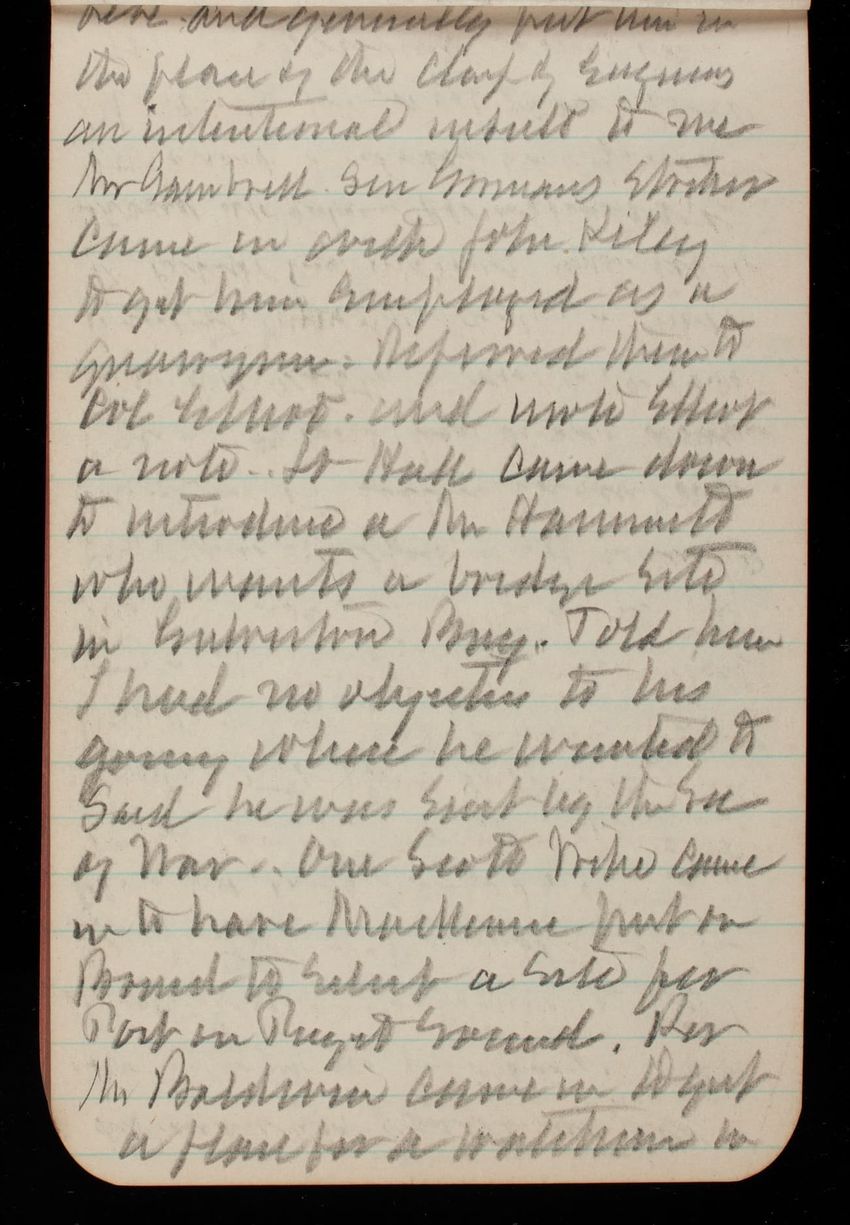 here and generally put him in
the place of the Chief of Engineers
an intentional insult to me
Mr Gambrill Sen Gormans
came in with John Kiley
to get him employed as a
Referred them to
Col Elliot. and wrote Elliot
a note. Lt Hall came down
to introduce a Mr
who wants a bridge site
in Galveston Bay. Told him
I had no objection to his
going where he wanted to
Said he was sent by the Sec
of War. One Scott came
in to have put on
Board to select a site for
Port on Puget Sound. Rev
Mr Baldwin came in to get
a place for a watchman in